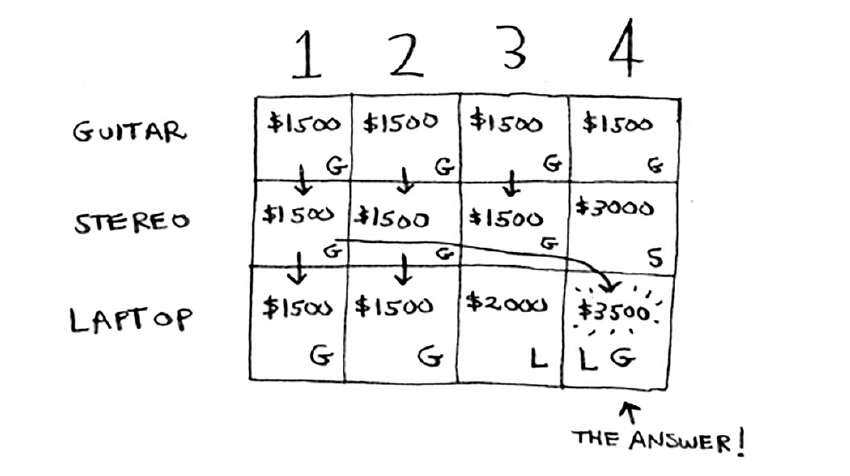 1 2 3 4
GUITAR $1500 $1500 $1500 $1500
G G G G
STEREO $1500 $1500 $1500 $3000
G G G S
LAPTOP $1500 $1500 $2000 $3500
G G L L G
THE ANSWER!